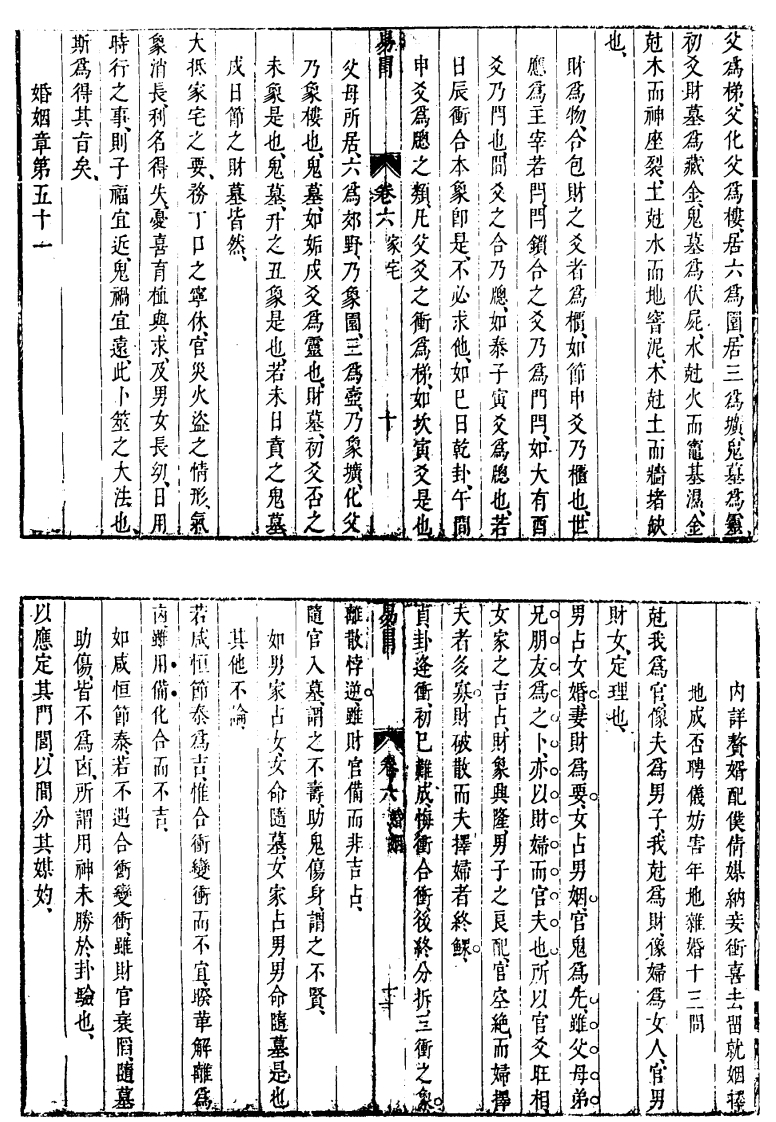 父爲梯、父化父爲樓、居六爲園、居三爲壙、鬼墓爲靈、
初爻財墓爲藏金、鬼墓爲伏屍、水尅火而竈基濕、金
尅木而神座裂、土尅水而地窨泥、木尅土而牆堵缺
也、
財爲物、合包財之爻者爲櫃、如節申爻乃櫃也、世
應爲主宰若門、門鎖合之爻乃爲門閂、如大有酉
爻乃門也、間爻之合乃牕、如泰子寅爻爲牕也、若
日辰衝合本象卽是、不必求他、如巳日乾卦、午間
申爻爲牕之類、凡父爻之衝爲梯、如坎寅爻是也、
易冐 卷六 家宅 十
父母所居、六爲郊野、乃象園、三爲壺、乃象壙、化父
乃象樓也、鬼墓、如姤戌爻爲靈也、財墓、初爻否之
未象是也、鬼墓、升之丑象是也、若未日賁之鬼墓、
戌日節之財墓皆然、
大抵家宅之要、務丁口之寧休、官災火盜之情形、氣
象消長、利名得失、憂喜育植與求、及男女長幼、日用
時行之事、則子福宜近、鬼禍宜遠、此卜筮之大法也、
斯爲得其旨矣、
婚姻章第五十一
內詳贅婿配僕倩媒納妾衝喜去留就姻擇
地成否聘儀妨害年地雜婚十三問
尅我爲官、像夫爲男子、我尅爲財、像婦爲女人、官男
財女、定理也、
男占女婚、妻財爲要、女占男姻、官鬼爲先、雖父母弟
兄朋友爲之卜、亦以財婦而官夫也、所以官爻旺相
女家之吉占、財象興隆、男子之良配、官空絶而婦擇
夫者多寡、財破散而夫擇婦者終鰥、
貞卦逢衝、初已難成、悔衝合衝、後終分拆、三衝之象、
易冐 卷六 婚姻 十一
離散悖逆、雖財官備而非吉占、
隨官入墓、謂之不壽、助鬼傷身、謂之不賢、
如男家占女、女命隨墓、女家占男、男命隨墓是也
其他不論、
若咸恒節泰爲吉、惟合衝變衝而不宜、睽革解離爲
凶、雖用備化合而不吉、
如咸恒節泰、若不遇合衝變衝、雖財官衰陷、隨墓
助傷皆不爲凶、所謂用神未勝於卦驗也、
以應定其門閭、以間分其媒妁、